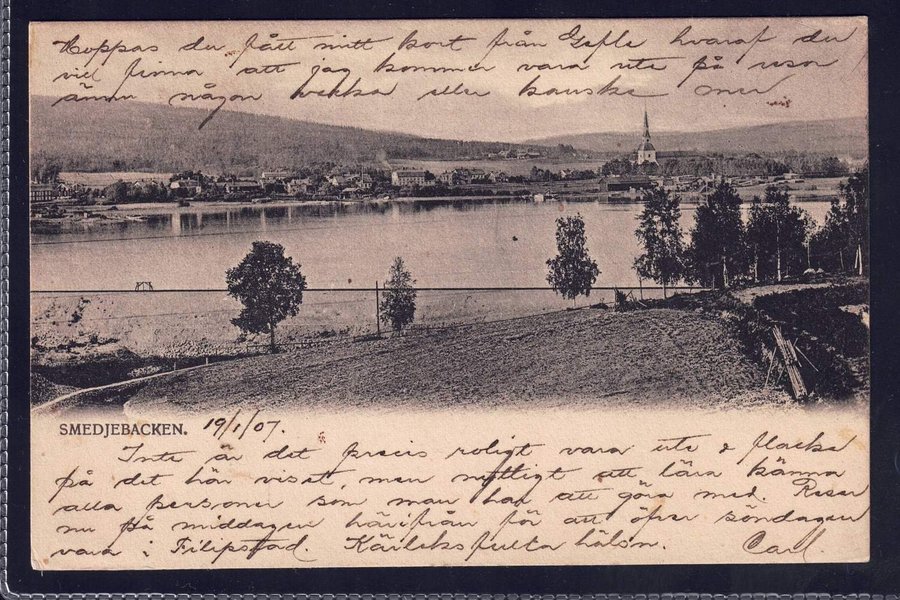 Hoppas du fått mitt kort från Gefle hvaraf du
vill finna att jag kommer vara ute på resor
ännu någon vecka eller kanske mer
SMEDJEBACKEN. 19/1/07.
Inte är det precis roligt vara ute & flacka
på det här viset, men nyttigt att lära känna
alla personer som man har att göra med. Reser
nu på middagen härifrån för att öfver söndagen
vara i Filipstad. Kärleksfulla hälsn. Carl.